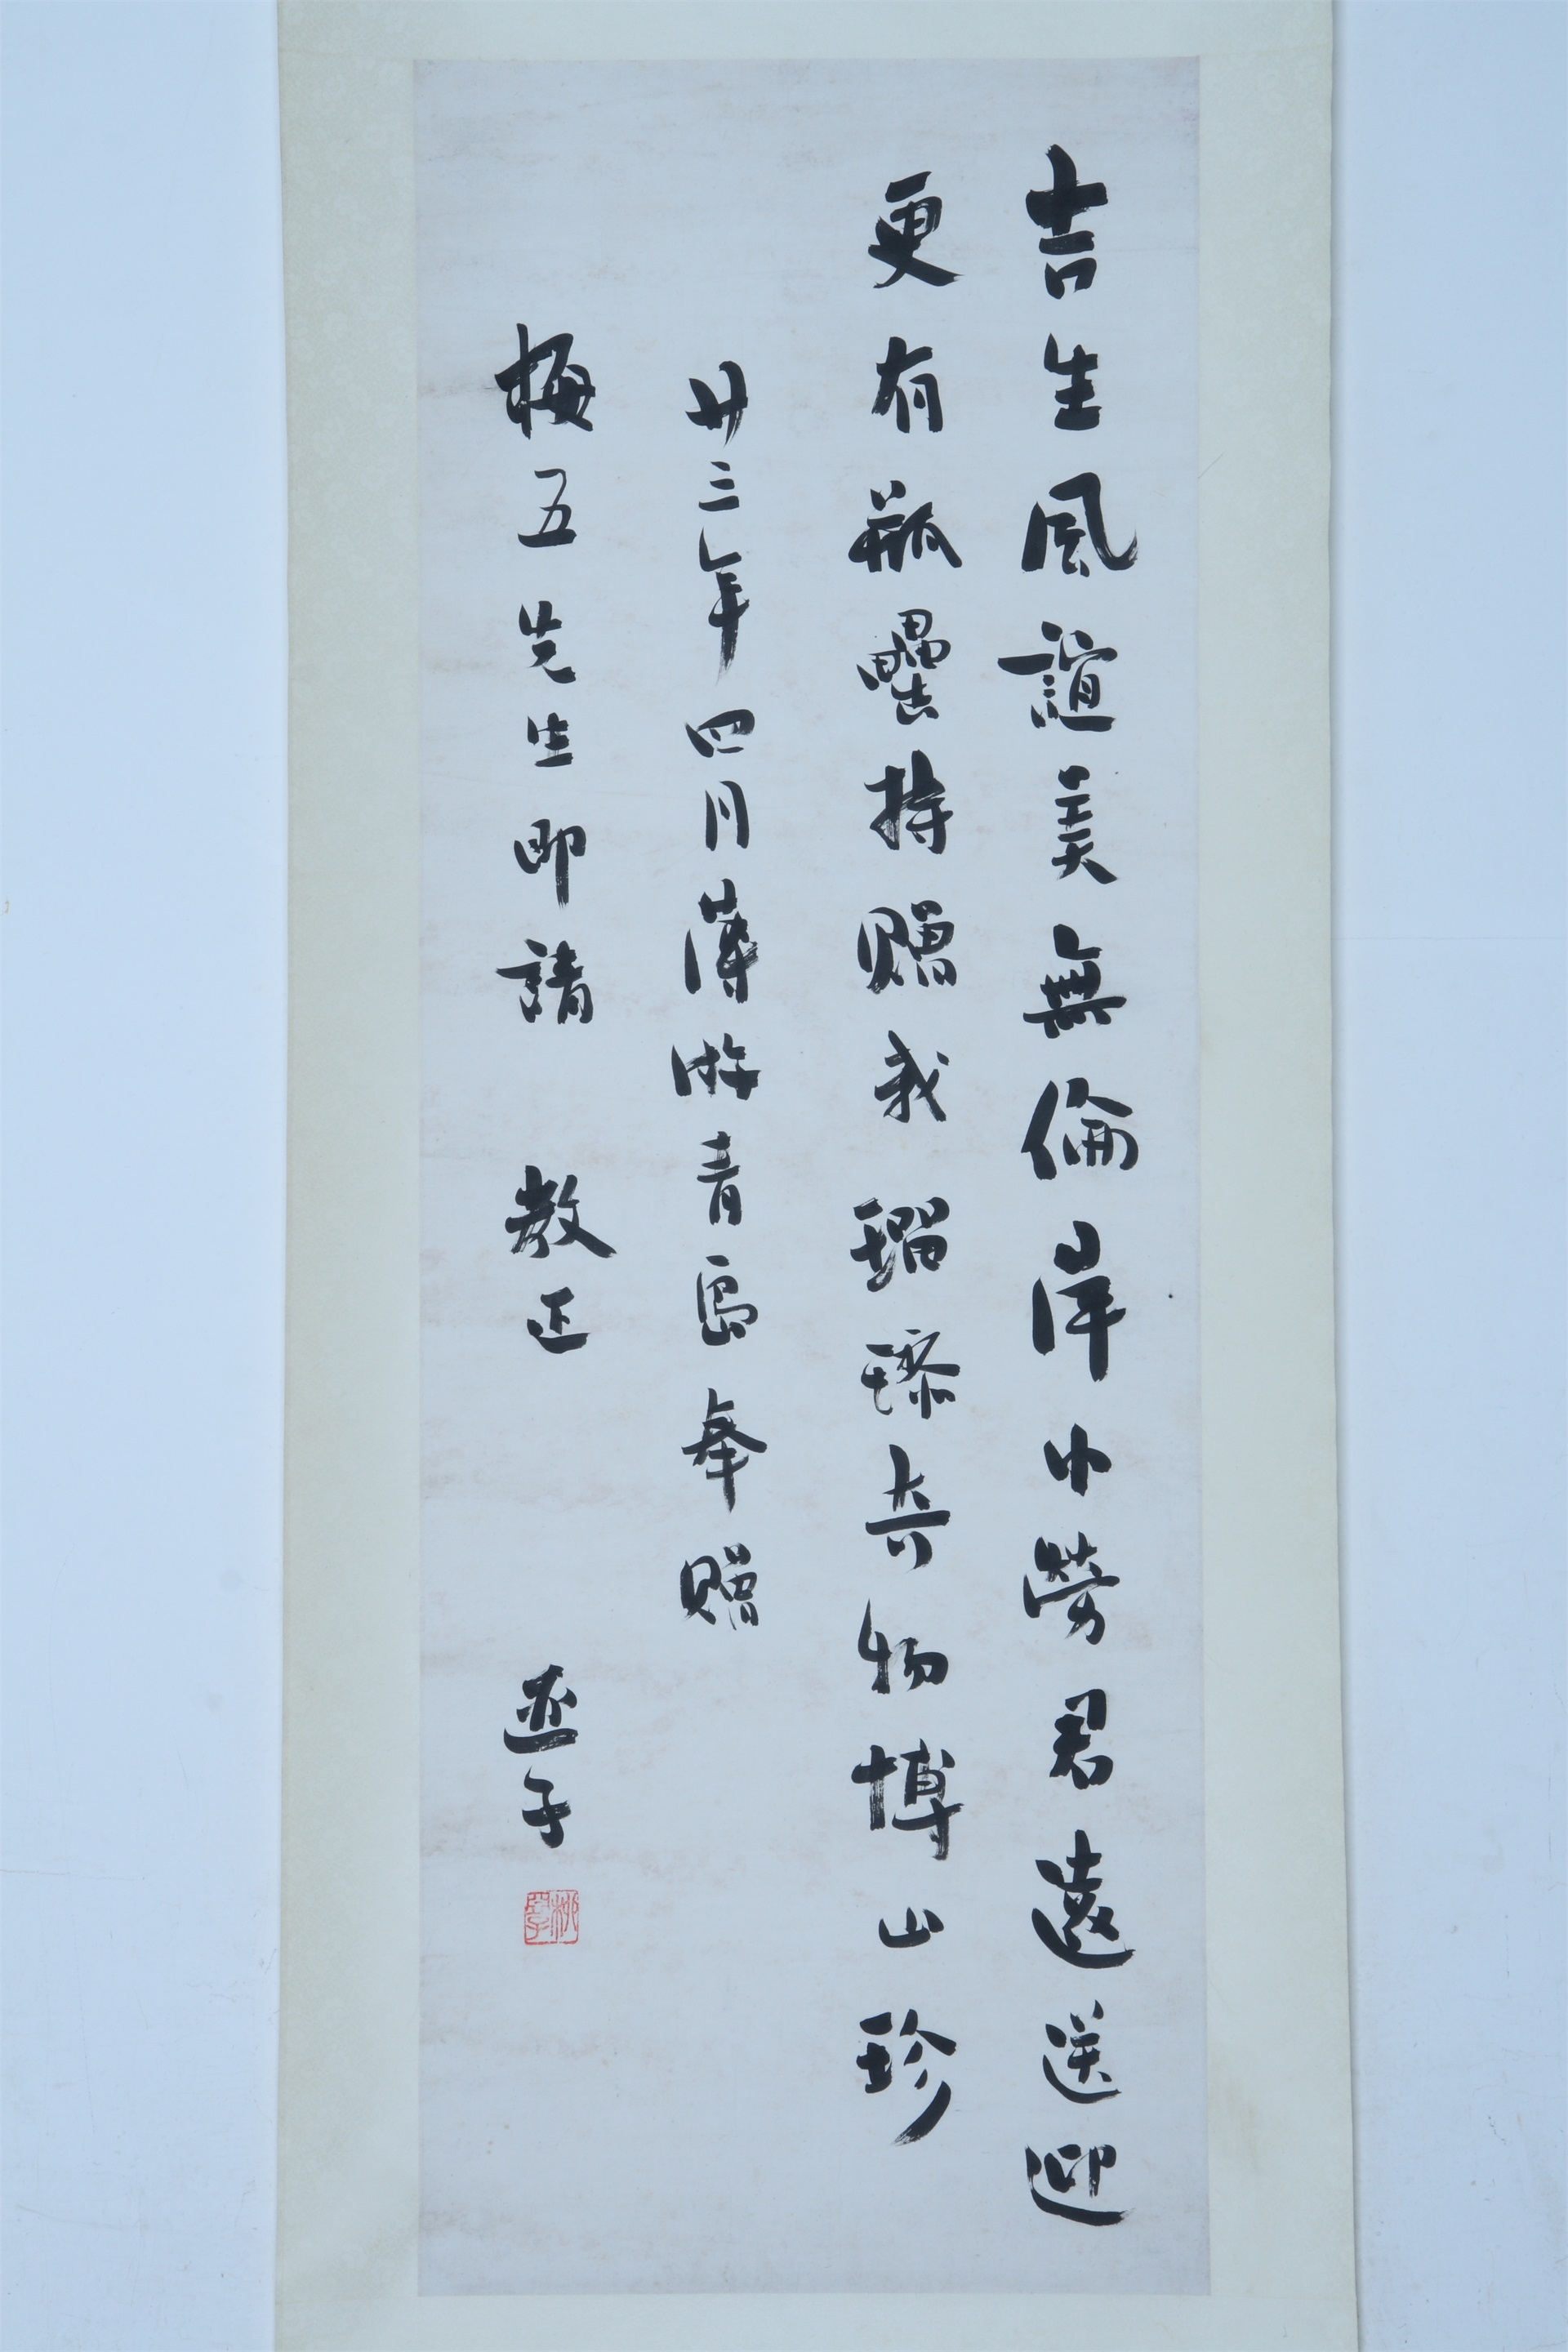 吉生風誼美無倫岸巾勞君遠送迎
更有瓶罍持贈我瑠璃奇物博山珍
廿三年四月薄游青島奉贈
梅五先生即請 教正 亞子